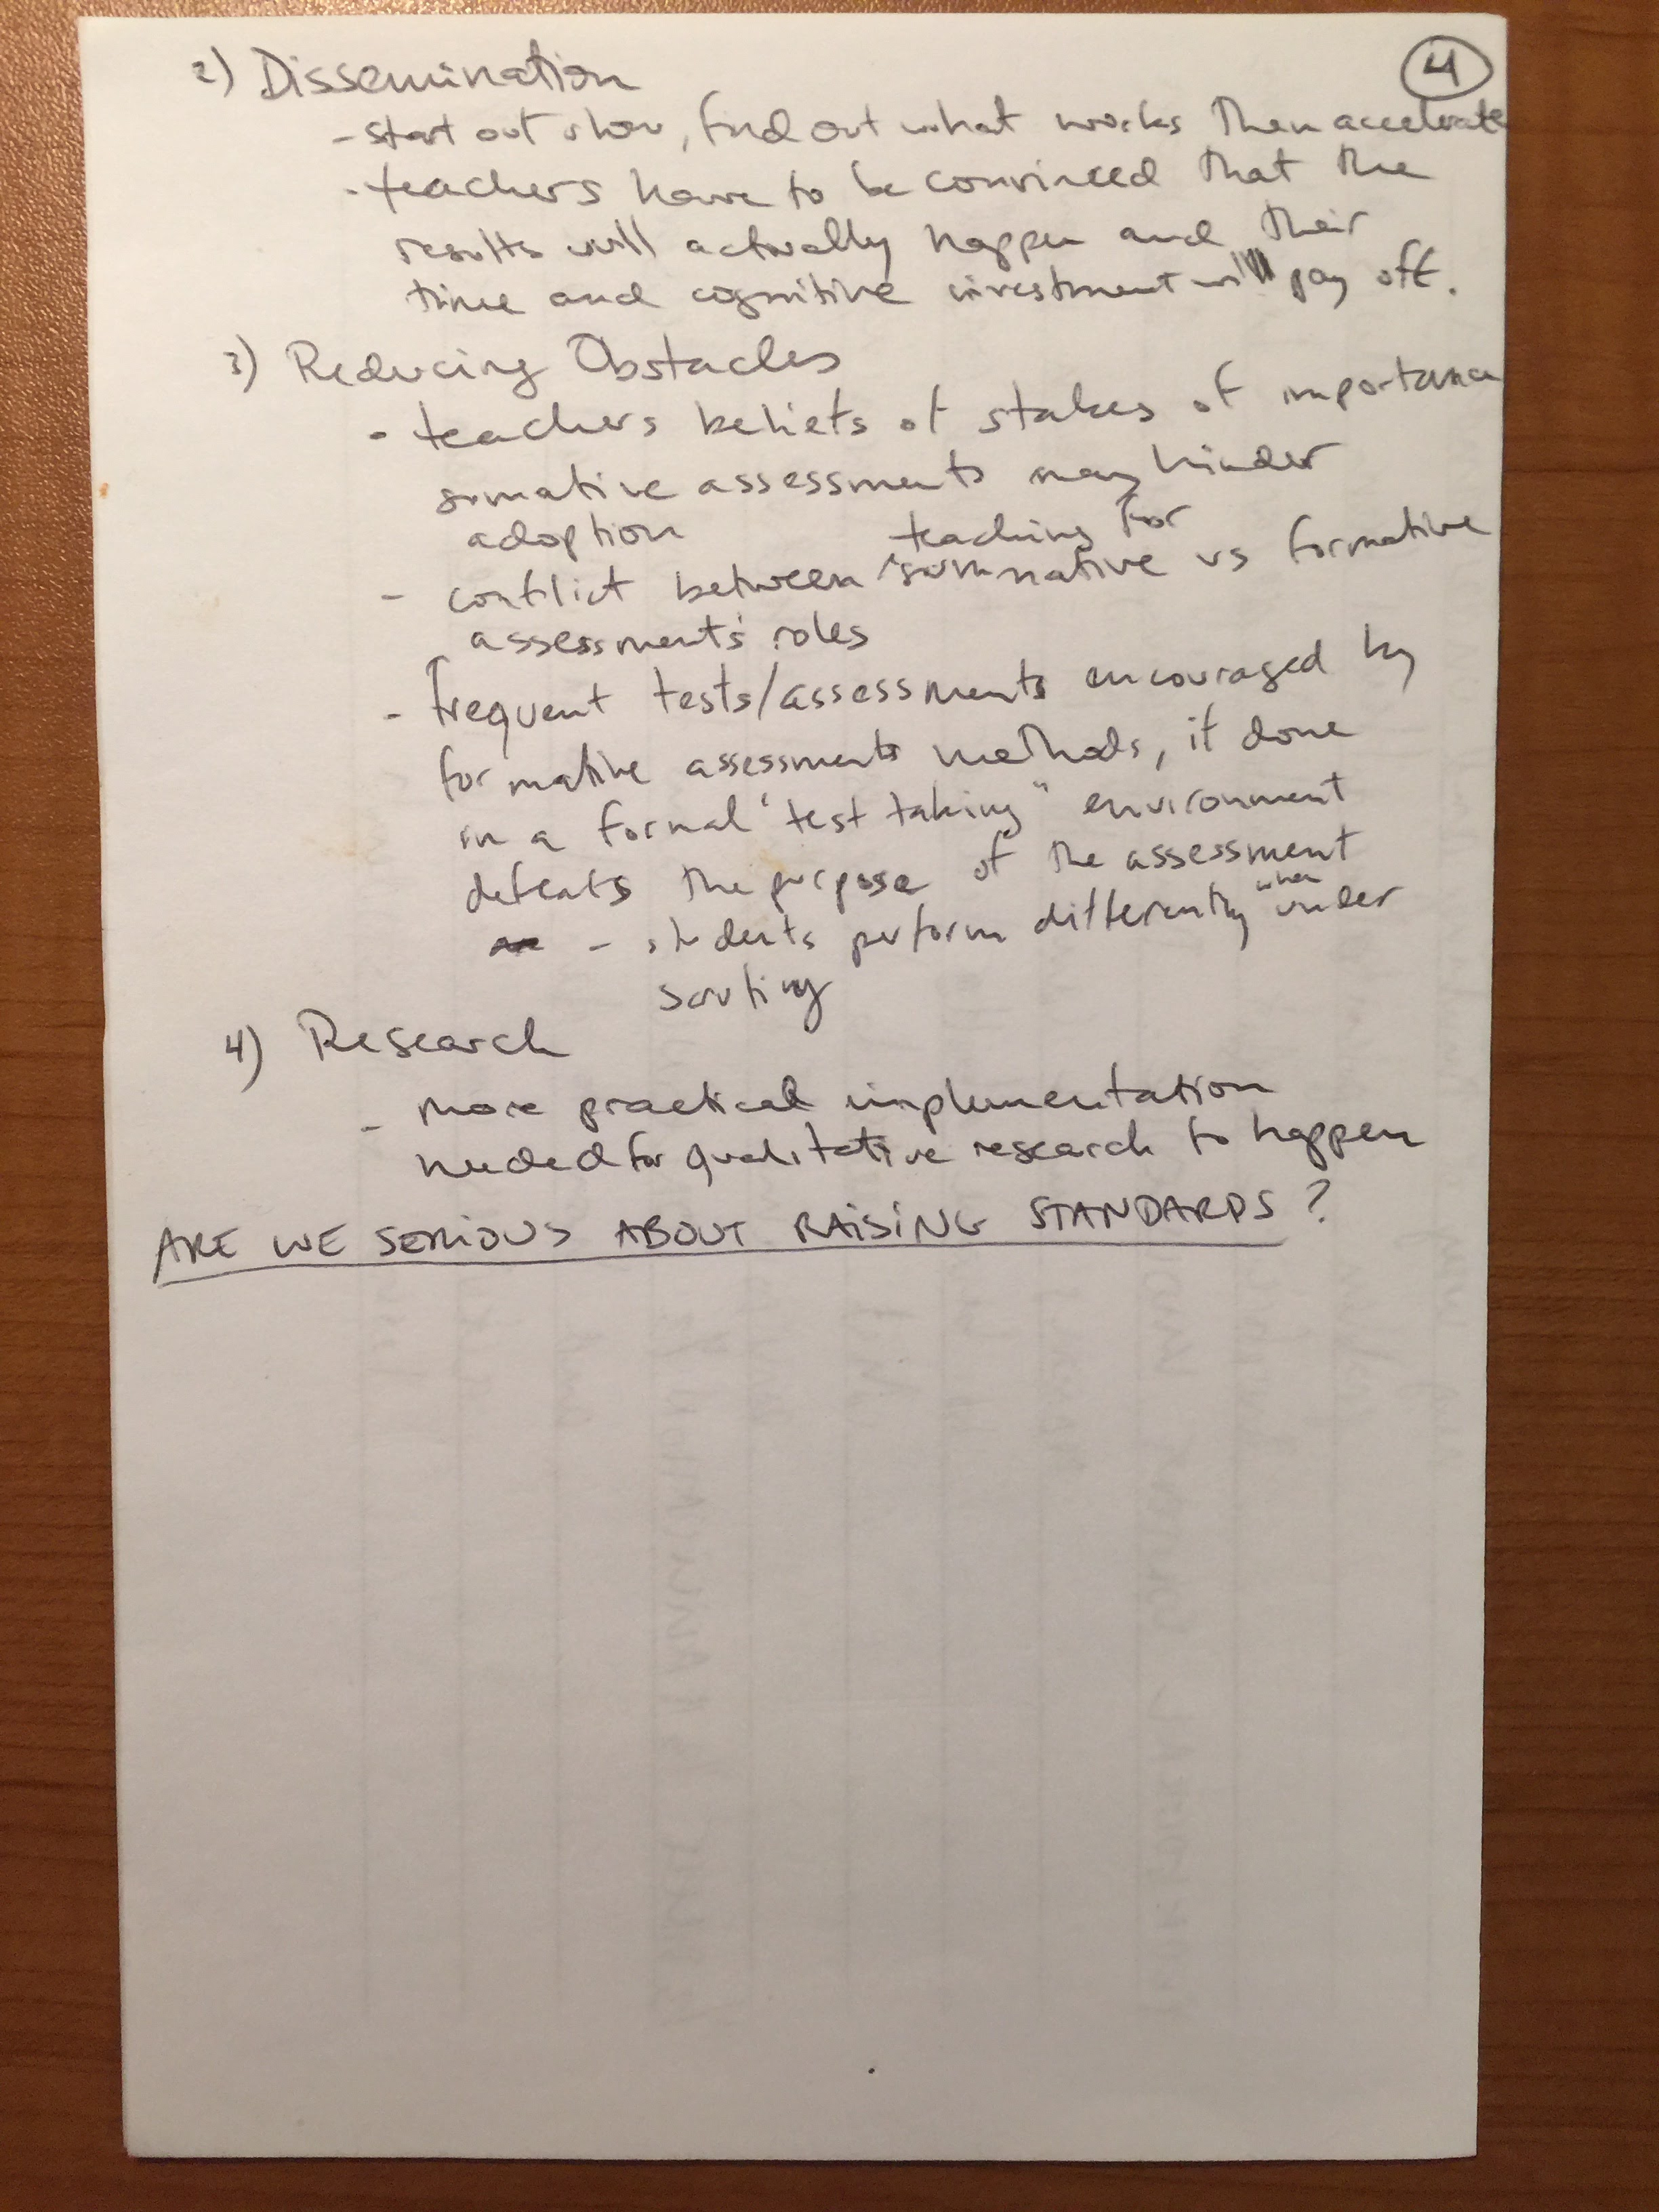 4
2) Dissemination
- start out slow, find out what works then accelerate
- teachers have to be convinced that the
results will actually happen and their
time and cognitive investment will pay off.
3) Reducing Obstacles
- teachers beliefs of stakes of importance
sumative assessments may hinder
adoption
teaching for
- conflict between ^summative vs formative
assessments' roles
- frequent tests/assessments encouraged by
formative assessments methods, if done
in a formal "test taking" environment
defeats the purpose of the assessment
when
- students perform differently under
scrutiny
4) Research
- more practical implementation
needed for qualitative research to happen
ARE WE SERIOUS ABOUT RAISING STANDARDS?